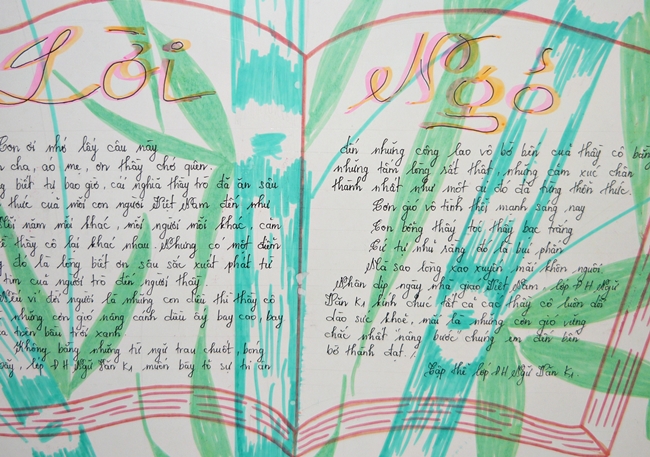 Lời Ngỏ
Con ơi nhớ lấy câu này
cha, áo mẹ, ơn thầy chớ quên.
biết tự bao giờ, cái nghĩa thầy trò đã ăn sâu
thức của mỗi con người Việt Nam dẫu như
mỗi năm mỗi khác, mỗi người mỗi khác, cảm
thầy cô lại khác nhau. Nhưng có một điểm
đó là lòng biết ơn sâu sắc xuất phát từ
của người trò đến người thầy.
Nếu ví đời người là những con diều thì thầy cô
những cơn gió nâng cánh diều ấy bay cao, bay
trên bầu trời xanh.
Không bằng những từ ngữ trau chuốt, bóng
bẩy, lớp ĐH Ngữ Văn K1 muốn bày tỏ sự tri ân
đến những công lao vô bờ bến của thầy cô bằng
những tấm lòng rất thật, những cảm xúc chân
thành nhất như một cái gì đó từng thổn thức
Cơn gió vô tình thổi mạnh sáng nay
Con bỗng thấy tóc thầy bạc trắng
Cứ tự nhủ rằng đó là bụi phấn
Mà sao lòng xao xuyến mãi khôn nguôi
Nhân dịp ngày nhà giáo Việt Nam, lớp ĐH Ngữ
Văn K1 kính chúc tất cả các thầy cô luôn dồi
dào sức khoẻ, mãi là những cơn gió vững
chắc nhất nâng bước chúng em đến bên
bờ thành đạt!
Tập thể lớp ĐH Ngữ Văn K1.